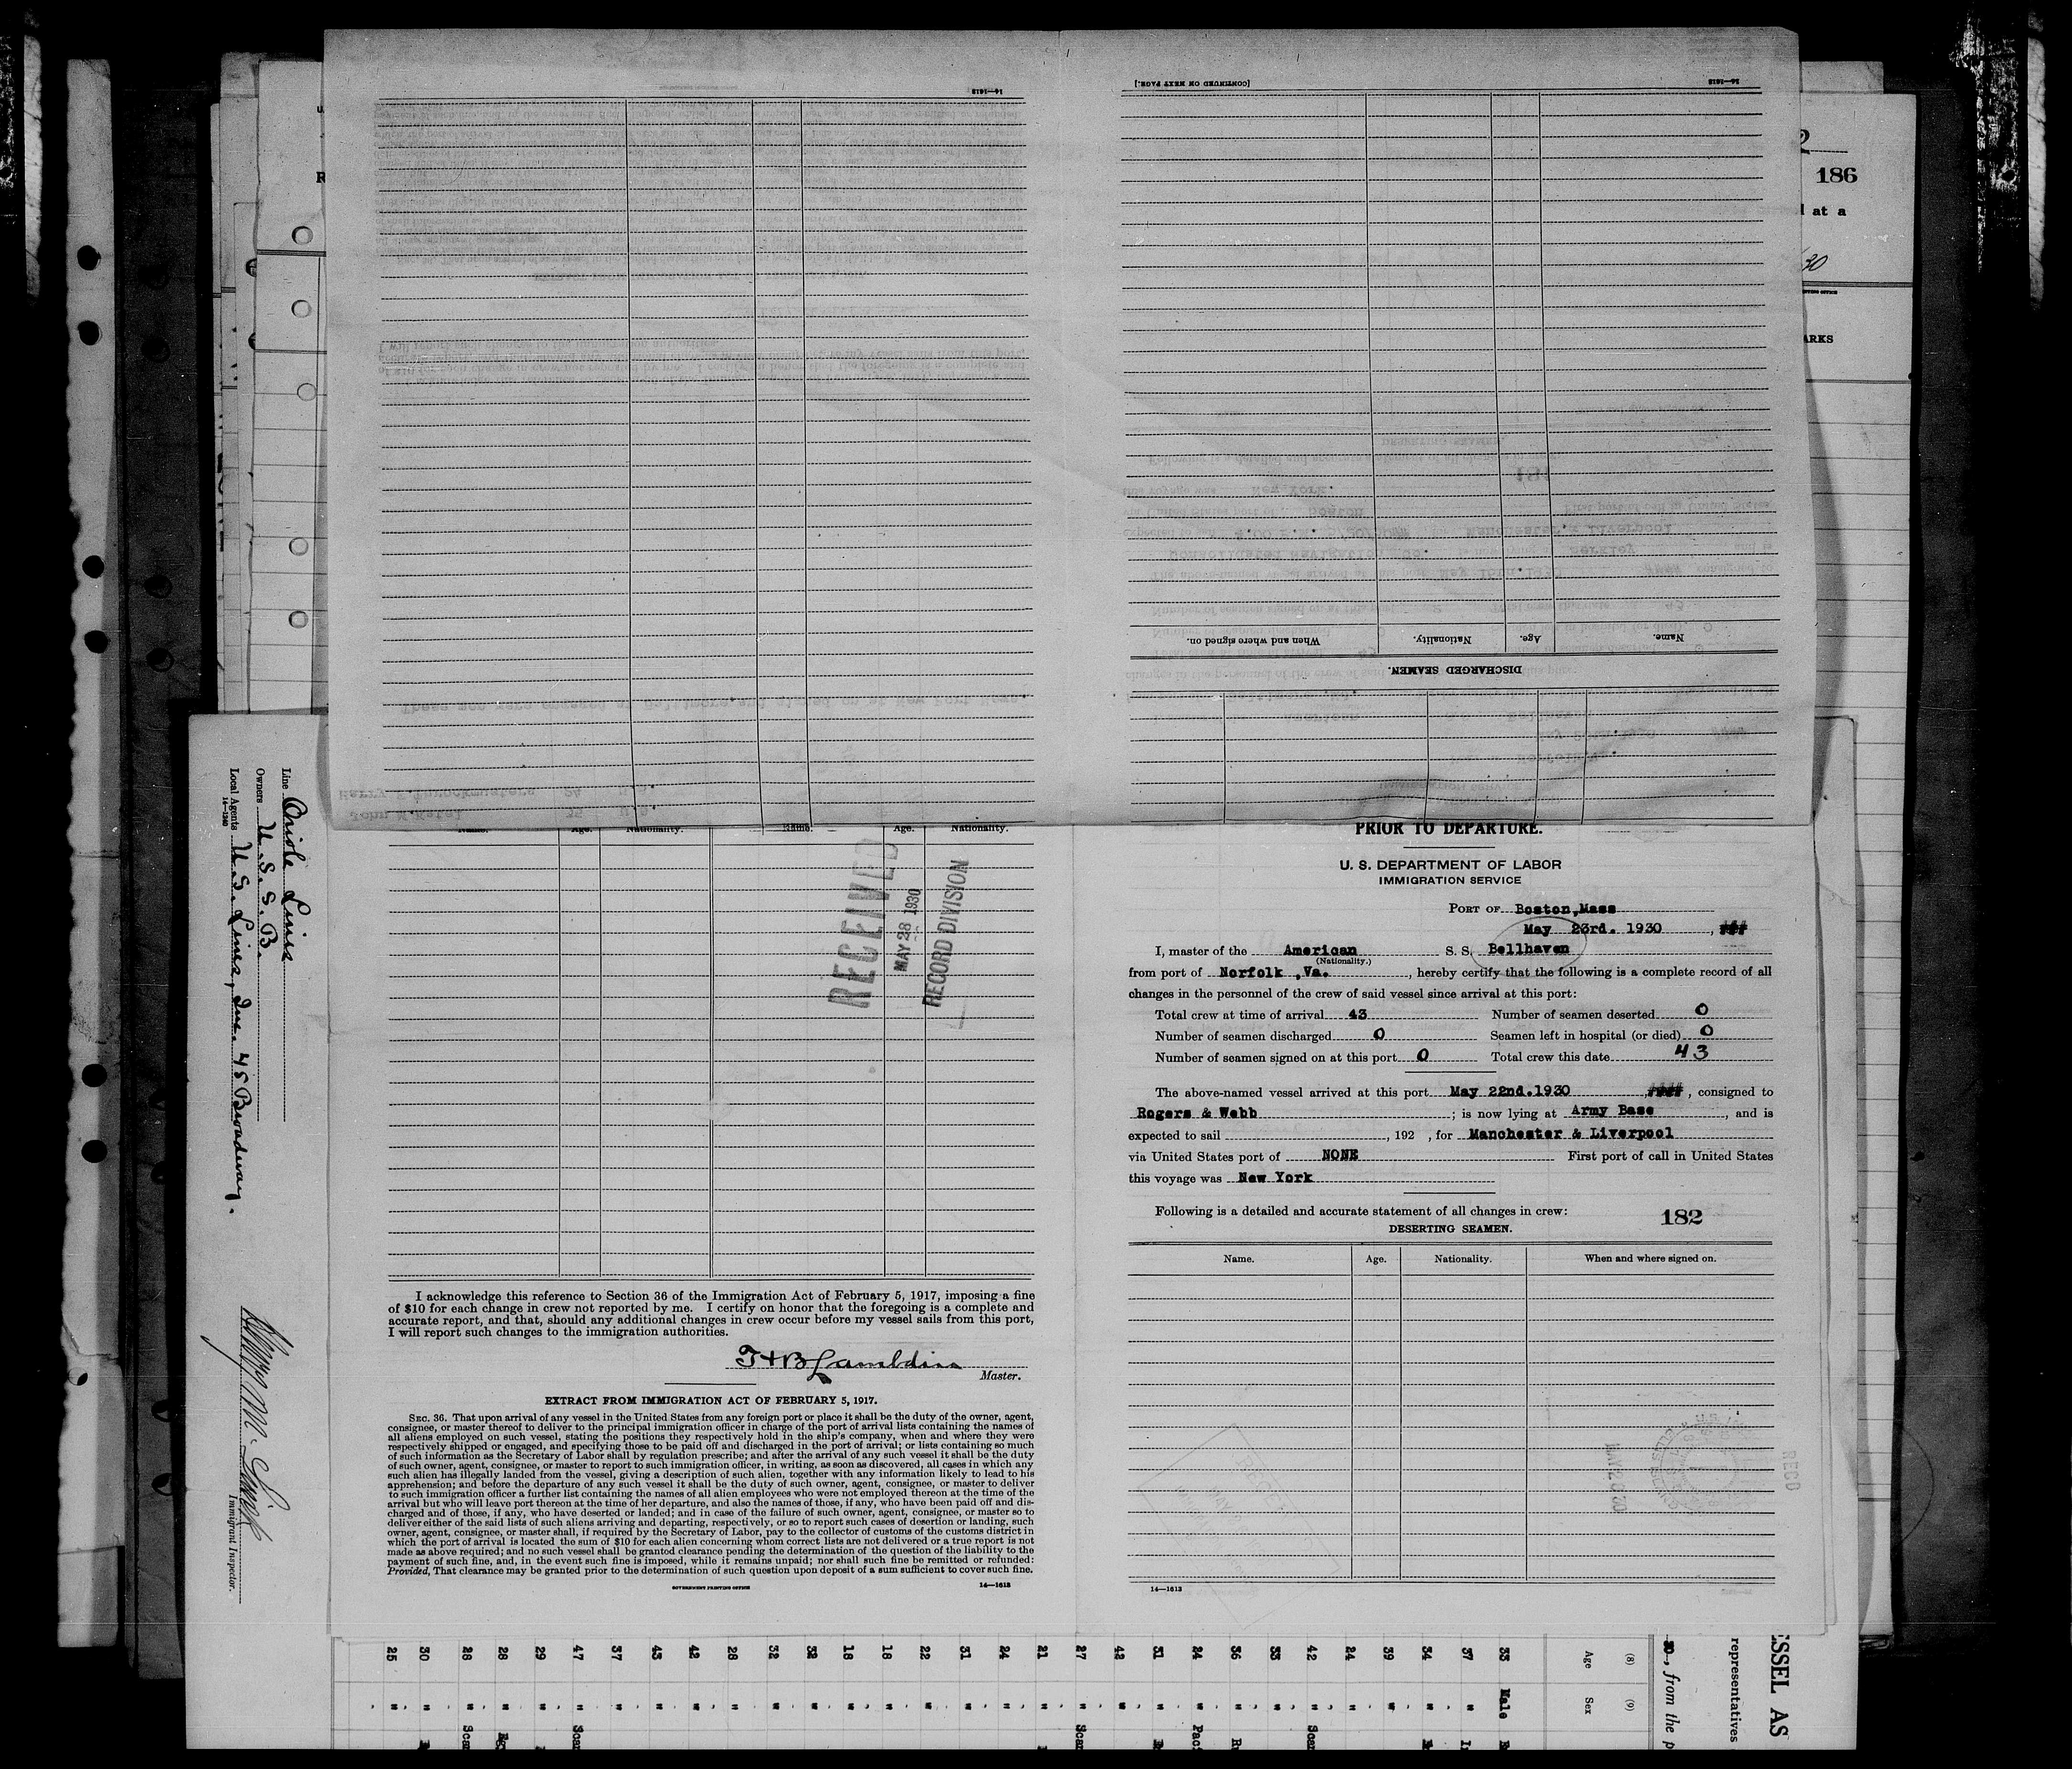 14—1613
[CONTINUED ON NEXT PAGE.]
14—1613
Name.
Age.
Nationality.
When and where signed on.
DISCHARGED SEAMEN.
2
186
at a
30
ARKS
Line Oriole Lines
Owners U. S. S. B.
Local Agents U. S. Lines, Inc. 45 Broadway.
14—1240
Immigrant Inspector.
Name. Age. Nationality. Name. Age. Nationality.
RECEIVED
MAY 28 1930
RECORD DIVISION
I acknowledge this reference to Section 36 of the Immigration Act of February 5, 1917, imposing a fine
of $10 for each change in crew not reported by me. I certify on honor that the foregoing is a complete and
accurate report, and that, should any additional changes in crew occur before my vessel sails from this port,
I will report such changes to the immigration authorities.
Lambdin
Master.
EXTRACT FROM IMMIGRATION ACT OF FEBRUARY 5, 1917.
SEC. 36. That upon arrival of any vessel in the United States from any foreign port or place it shall be the duty of the owner, agent,
consignee, or master thereof to deliver to the principal immigration officer in charge of the port of arrival lists containing the names of
all aliens employed on such vessel, stating the positions they respectively hold in the ship's company, when and where they were
respectively shipped or engaged, and specifying those to be paid off and discharged in the port of arrival; or lists containing so much
of such information as the Secretary of Labor shall by regulation prescribe; and after the arrival of any such vessel it shall be the duty
of such owner, agent, consignee, or master to report to such immigration officer, in writing, as soon as discovered, all cases in which any
such alien has illegally landed from the vessel, giving a description of such alien, together with any information likely to lead to his
apprehension; and before the departure of any such vessel it shall be the duty of such owner, agent, consignee, or master to deliver
to such immigration officer a further list containing the names of all alien employees who were not employed thereon at the time of the
arrival but who will leave port thereon at the time of her departure, and also the names of those, if any, who have been paid off and dis-
charged and of those, if any, who have deserted or landed; and in case of the failure of such owner, agent, consignee, or master so to
deliver either of the said lists of such aliens arriving and departing, respectively, or so to report such cases of desertion or landing, such
owner, agent, consignee, or master shall, if required by the Secretary of Labor, pay to the collector of customs of the customs district in
which the port of arrival is located the sum of $10 for each alien concerning whom correct lists are not delivered or a true report is not
made as above required; and no such vessel shall be granted clearance pending the determination of the question of the liability to the
payment of such fine, and, in the event such fine is imposed, while it remains unpaid; nor shall such fine be remitted or refunded:
Provided, That clearance may be granted prior to the determination of such question upon deposit of a sum sufficient to cover such fine.
GOVERNMENT PRINTING OFFICE 14—1613
PRIOR TO DEPARTURE.
U. S. DEPARTMENT OF LABOR
IMMIGRATION SERVICE
PORT OF Boston,Mass
May 23rd. 1930
I, master of the American S. S. Bellhaven
(Nationality.)
from port of Norfolk ,Va. , hereby certify that the following is a complete record of all
changes in the personnel of the crew of said vessel since arrival at this port:
Total crew at time of arrival 43 Number of seamen deserted 0
Number of seamen discharged 0 Seamen left in hospital (or died) 0
Number of seamen signed on at this port 0 Total crew this date 43
The above-named vessel arrived at this port May 22nd.1930 , consigned to
Rogers & Webb ; is now lying at Army Base , and is
expected to sail , 192 , for Manchester & Liverpool
via United States port of NONE First port of call in United States
this voyage was New York
Following is a detailed and accurate statement of all changes in crew: 182
DESERTING SEAMEN.
Name. Age. Nationality. When and where signed on.
14—1613
REC'D
25 30 28 28 29 47 37 43 42 28 32 32 18 18 22 31 24 21 27 42 31 24 36 33 42 24 39 34 37 33
Age
(8)
Male
Sex
(9)
, from the p
representatives
ESSEL AS